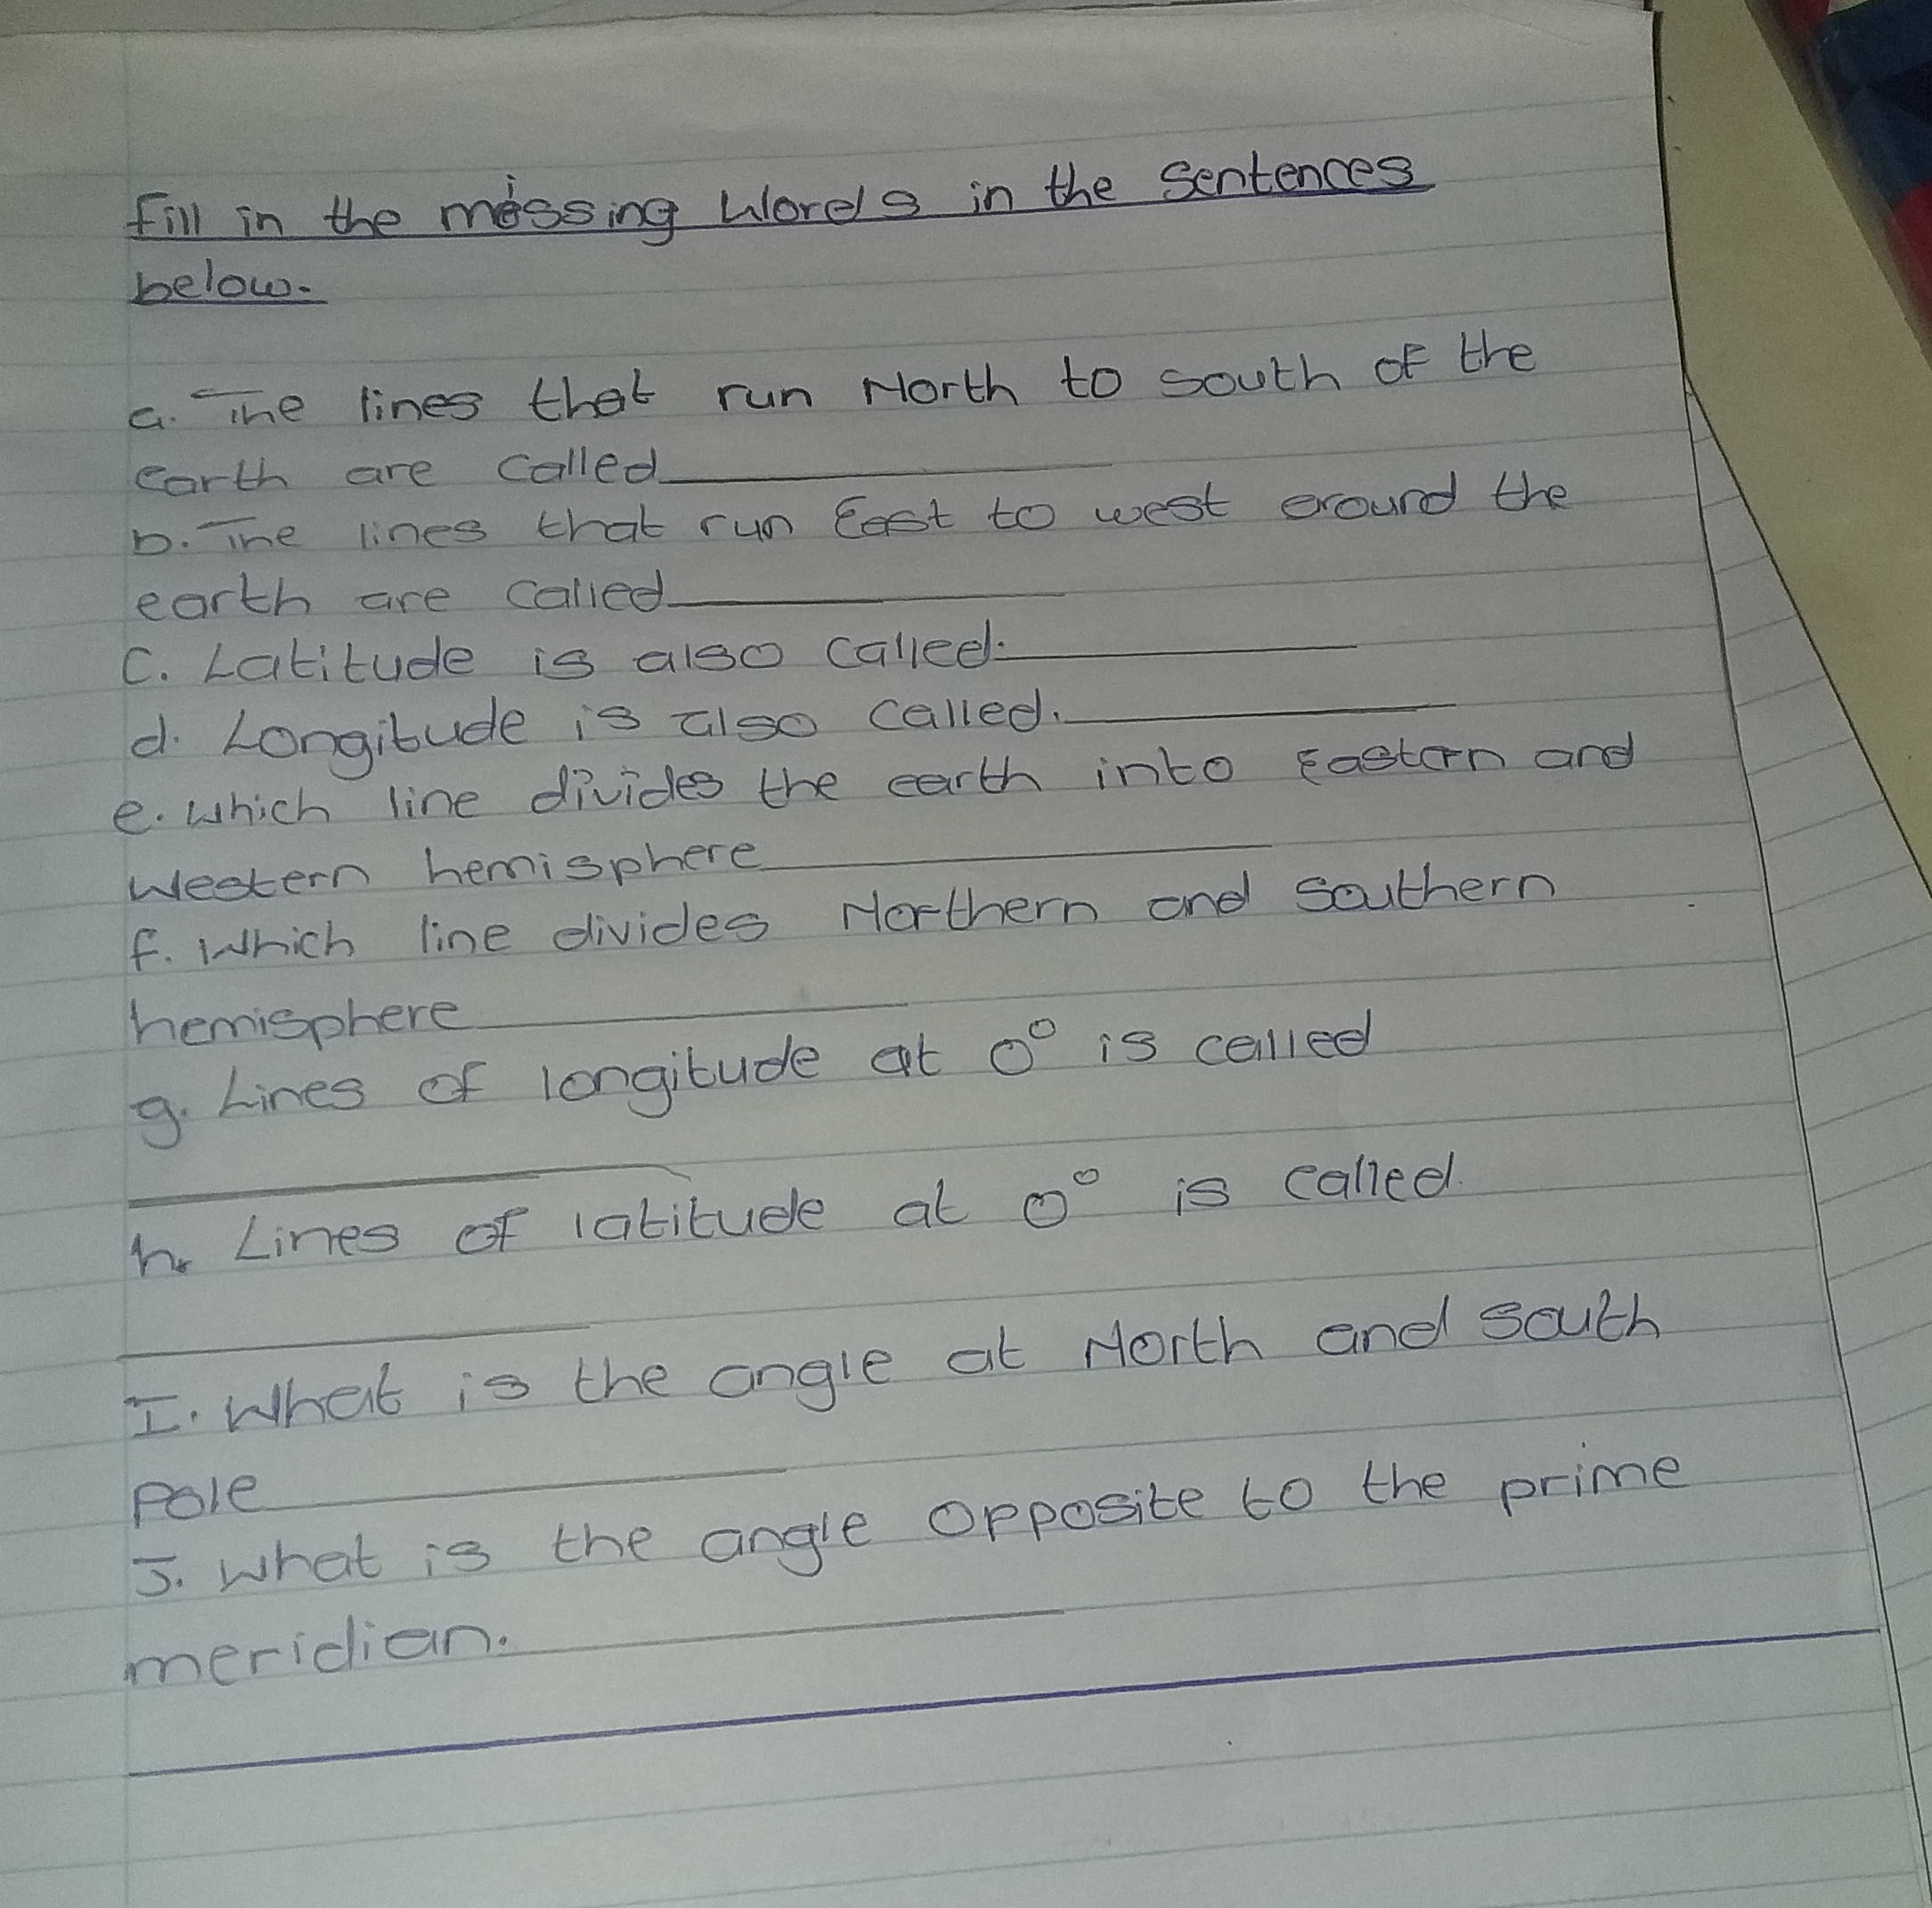 Fill in the missing words in the sentences
below.
a. The lines that run North to south of the
earth are called
b. The lines that run East to west around the
earth are called
C. Latitude is also called.
d. Longitude is also called.
e. which line divides the earth into Eastern and
Western hemisphere
f. Which line divides Northern and Southern
hemisphere
g. Lines of longitude at 0° is called
h. Lines of latitude at 0° is called.
I. What is the angle at North and South
Pole
J. What is the angle opposite to the prime
meridian.